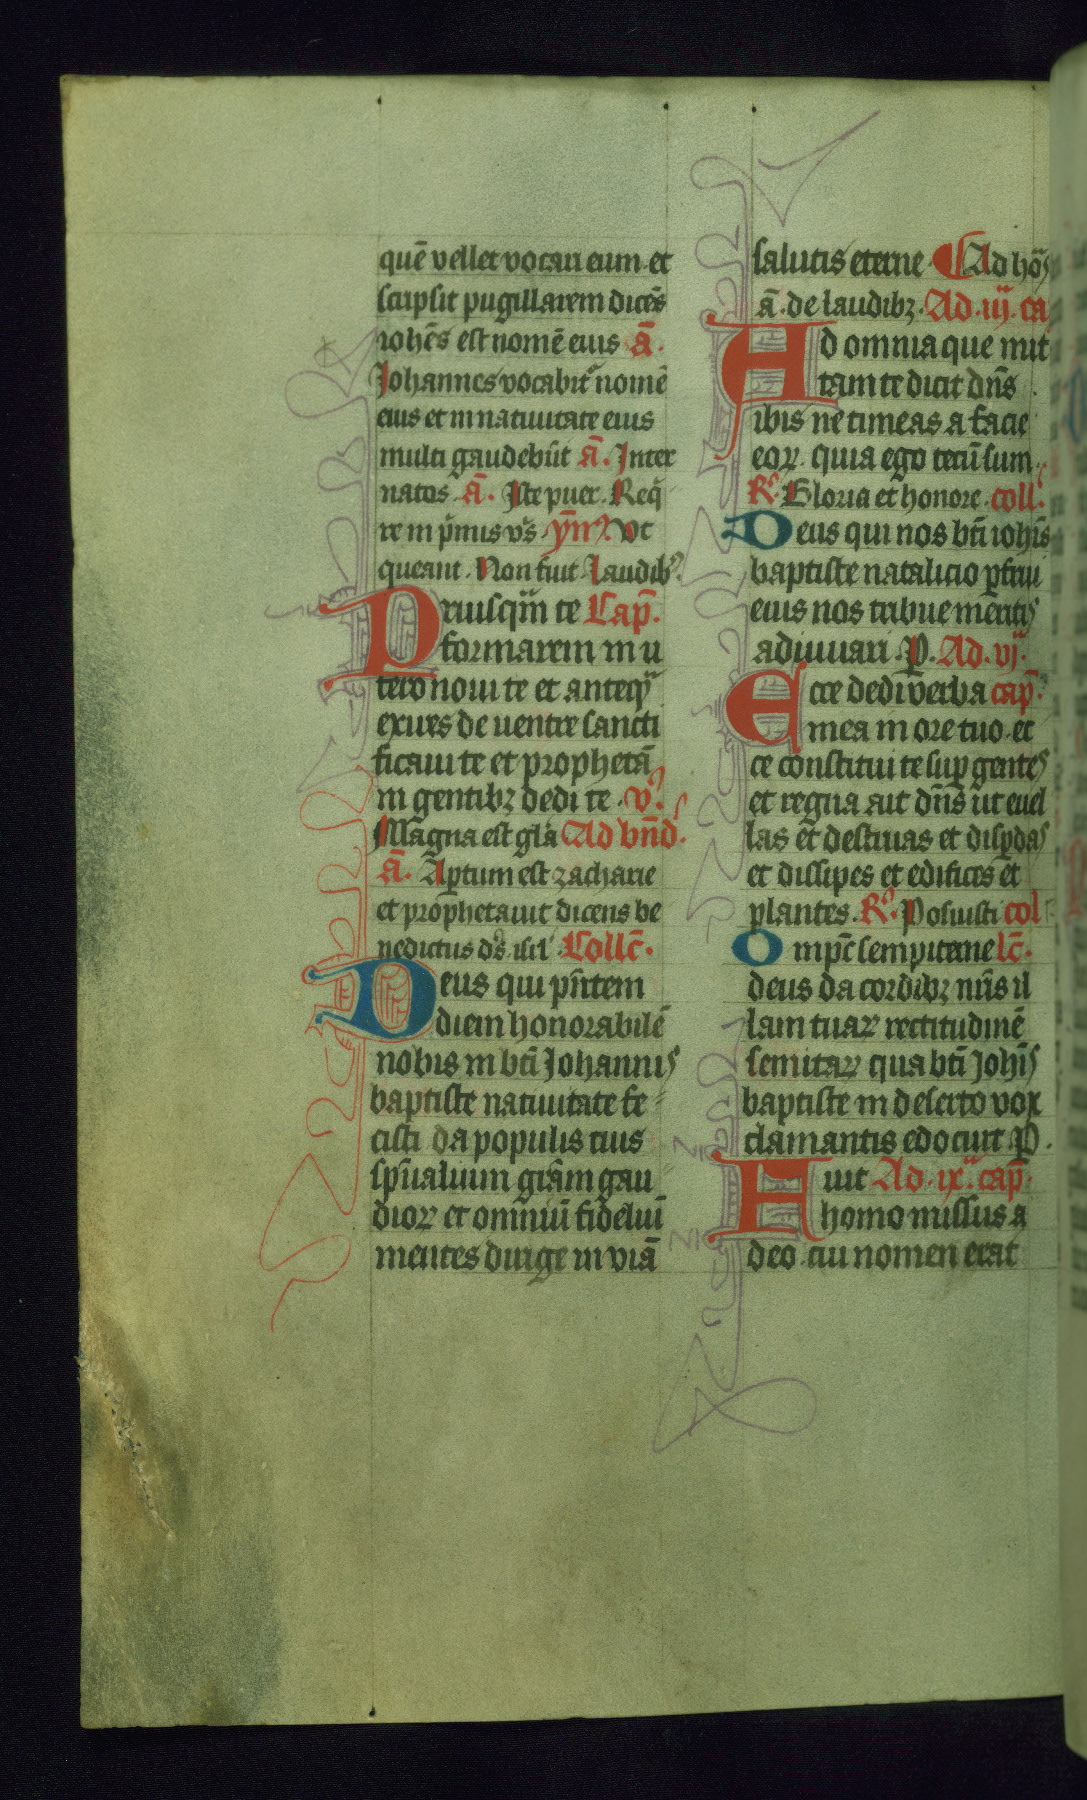 quē vellet vocari eum et
scripsit pugillarem dicēs
iohēs est nomē eius ā.
Johannes vocabit᷑ nomē
eius et in natiuitate eius
multi gaudebūt ā. Inter
natos. ā. Iste puer. Req̄
re in p̄mis vs̄. ym̄. Vt
queant. Non fuit. Laudib⁹.
Priusq̄m te Cap̄.
formarem in u
tero noui te et anteq̄
exires de uentre sancti
ficaui te et prophetā
in gentibꝫ dedi te. v⁹.
Magna est gl̄a Ad bn̄d.
ā. Ap̄tum est zacharie
et prophetauit dicens be
nedictus ds̄ isrl̄. Collc̄.
Deus qui pn̄tem
diem honorabilē
nobis in bt̄i Johannis
baptiste natiuitate fe
cisti da populis tuis
sp̄ualium gr̄am gau
dioꝝ et omniū fideliū
mentes dirige in viā
salutis eterne. ¶ Ad hōs
ā. de laudibꝫ. Ad .iij. ca
Ad omnia que mit
tam te dicit dn̄s
ibis ne timeas a facie
eoꝝ. quia ego tecū sum.
R⁹. Gloria et honore. coll.
Deus qui nos bt̄i ioh̄is
baptiste natalicio ꝑfrui
eius nos tribue meritis
adiuuari. P. Ad .vj.
Ecce dedi verba cap̄.
mea in ore tuo. ec
ce constitui te suꝑ gentes
et regna ait dn̄s ut euel
las et destruas et disꝑdas
et dissipes et edifices et
plantes. R⁹. Posuisti col
Omp̄c sempiterne lc̄.
deus da cordibꝫ nr̄is il
lam tuaꝝ rectitudinē
semitaꝝ qua bt̄i Joh̄is
baptiste in deserto vox
clamantis edocuit. P.
Fuit Ad .ix. cap̄.
homo missus a
deo. cui nomen erat